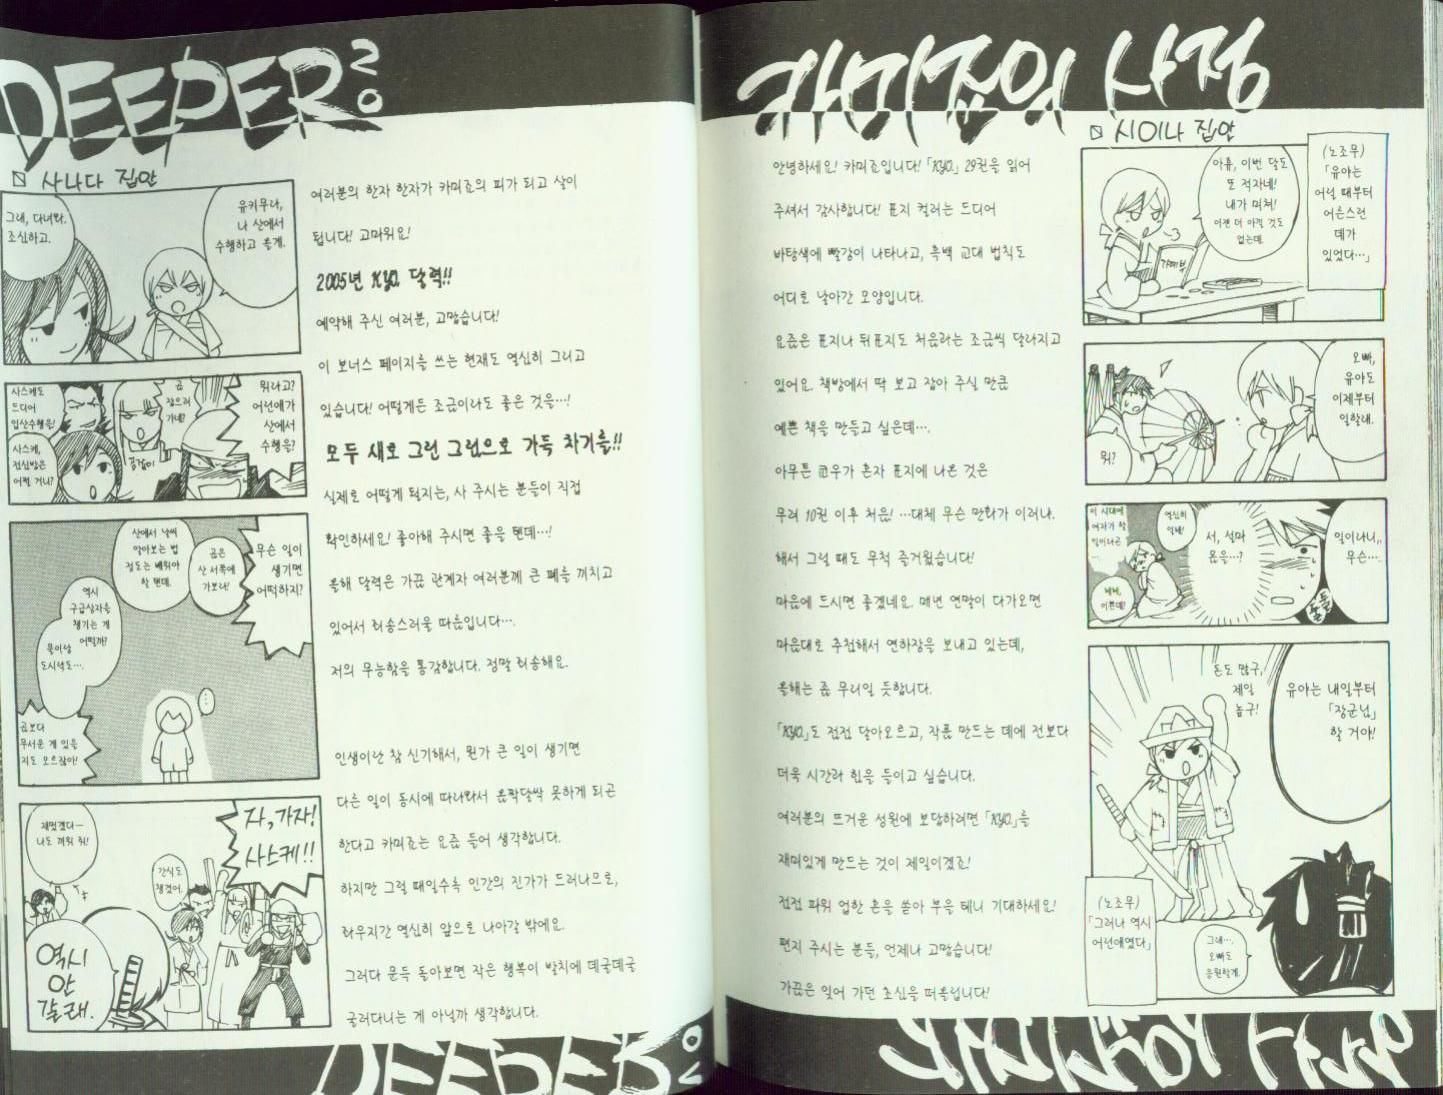 카미죠의 사정
시이나 집안
(노조무)
「유야는
어릴 때부터
어른스런
데가
있었다…」
아휴, 이번 달도
또 적자네!
내가 미쳐!
이젠 더 아낄 것도
없는데.
가계부
오빠,
유야도
이제부터
일할래.
뭐?
일이라니,,
무슨…
서, 설마
몸을…?
열심히
일해!
이 시대에
여자가 할
일이라곤
…
헤헤,
이쁜데?
유야는 내일부터
「장군님」
할 거야!
돈도 많구,
제일
높구!
그래…
오빠도
응원할게.
(노조무)
「그러나 역시
어린애였다」
안녕하세요! 카미죠입니다! 「KYO」 29권을 읽어
주셔서 감사합니다! 표지 컬러는 드디어
바탕색에 빨강이 나타나고, 흑백 교대 법칙도
어디로 날아간 모양입니다.
요즘은 표지나 뒤표지도 처음과는 조금씩 달라지고
있어요. 책방에서 딱 보고 잡아 주실 만큼
예쁜 책을 만들고 싶은데….
아무튼 쿄우가 혼자 표지에 나온 것은
무려 10권 이후 처음! …대체 무슨 만화가 이러냐.
해서 그릴 때도 무척 즐거웠습니다!
마음에 드시면 좋겠네요. 매년 연말이 다가오면
마음대로 추첨해서 연하장을 보내고 있는데,
올해는 좀 무리일 듯합니다.
「KYO」도 점점 달아오르고, 작품 만드는 데에 전보다
더욱 시간과 힘을 들이고 싶습니다.
여러분의 뜨거운 성원에 보답하려면 「KYO」를
재미있게 만드는 것이 제일이겠죠!
점점 파워 업한 혼을 쏟아 부을 테니 기대하세요!
편지 주시는 분들, 언제나 고맙습니다!
가끔은 잊어 가던 초심을 떠올립니다!
카미죠의 사정
DEEPER
20
여러분의 한자 한자가 카미죠의 피가 되고 살이
됩니다! 고마워요!
2005년 KYO 달력!!
예약해 주신 여러분, 고맙습니다!
이 보너스 페이지를 쓰는 현재도 열심히 그리고
있습니다! 어떻게든 조금이라도 좋은 것을…!
모두 새로 그린 그림으로 가득 차기를!!
실제로 어떻게 될지는, 사 주시는 분들이 직접
확인하세요! 좋아해 주시면 좋을 텐데…!
올해 달력은 가끔 관계자 여러분께 큰 폐를 끼치고
있어서 죄송스러울 따름입니다….
저의 무능함을 통감합니다. 정말 죄송해요.
인생이란 참 신기해서, 뭔가 큰 일이 생기면
다른 일이 동시에 따라와서 옴짝달싹 못하게 되곤
한다고 카미죠는 요즘 들어 생각합니다.
하지만 그럴 때일수록 인간의 진가가 드러나므로,
좌우지간 열심히 앞으로 나아갈 밖에요.
그러다 문득 돌아보면 작은 행복이 발치에 데굴데굴
굴러다니는 게 아닐까 생각합니다.
사나다 집안
유키무라,
나 산에서
수행하고 올게.
그래, 다녀와.
조심하고.
뭐라고?
어린애가
산에서
수행을?
곰
잡으러
가네?
사스케도
드디어
입산수행을!
사스케,
점심밥은
어쩔 거니?
무슨 일이
생기면
어떡하지?
곰은
산 서쪽에
가보라!
산에서 날씨
알아보는 법
정도는 배워야
할 텐데.
역시
구급상자를
챙기는 게
어떨까?
물이랑
도시락도….
곰보다
무서운 게 있을
지도 모르잖아!
자, 가자!
사스케!!
간식도
챙겼어.
재밌겠다—
나도 끼워 줘!
역시
안
갈래.
DEEPER
20